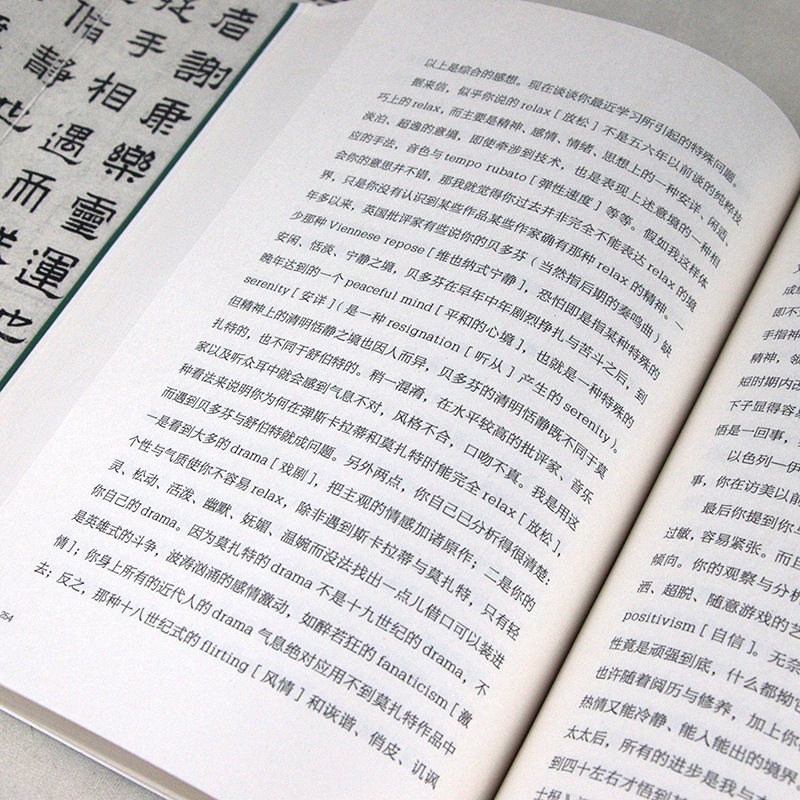 者謝康樂靈運也
手相遇而
脩靜
以上是综合的感想。现在谈谈你最近学习所引起的特殊问题。
据来信，似乎你说的relax［放松］不是五六年以前谈的纯粹技
巧上的relax，而主要是精神、感情、情绪、思想上的一种安详、闲适、
淡泊、超逸的意境，即使牵涉到技术，也是表现上述意境的一种相
应的手法，音色与tempo rubato［弹性速度］等等。假如我这样体
会你的意思并不错，那我就觉得你过去并非完全不能表达relax的境
界，只是你没有认识到某些作品某些作家确有那种relax的精神。一
年多以来，英国批评家有些说你的贝多芬（当然指后期的奏鸣曲）缺
少那种Viennese repose［维也纳式宁静］，恐怕即是指某种特殊的
安闲、恬淡、宁静之境，贝多芬在早年中年剧烈挣扎与苦斗之后，到
晚年达到的一个peaceful mind［平和的心境］，也就是一种特殊的
serenity［安详］（是一种resignation［听从］产生的serenity）。
但精神上的清明恬静之境也因人而异，贝多芬的清明恬静既不同于莫
扎特的，也不同于舒伯特的。稍一混淆，在水平较高的批评家、音乐
家以及听众耳中就会感到气息不对，风格不合，口吻不真。我是用这
种看法来说明你为何在弹斯卡拉蒂和莫扎特时能完全relax［放松］，
而遇到贝多芬与舒伯特就成问题。另外两点，你自己已分析得很清楚：
一是看到大多的drama［戏剧］，把主观的情感加诸原作；二是你的
个性与气质使你不容易relax，除非遇到斯卡拉蒂与莫扎特，只有轻
灵、松动、活泼、幽默、妩媚、温婉而没法找出一点儿借口可以装进
你自己的drama。因为莫扎特的drama不是十九世纪的drama，不
是英雄式的斗争，波涛汹涌的感情激动，如醉若狂的fanaticism［激
情］；你身上所有的近代人的drama气息绝对应用不到莫扎特作品中
去；反之，那种十八世纪式的flirting［风情］和诙谐、俏皮、讥讽
254
成
即不
手指神
精神，领
短时期内改
下子显得容
悟是一回事，
以色列一伊
事，你在访美以前
最后你提到你与
过敏，容易紧张。而且
倾向。你的观察与分析
洒、超脱、随意游戏的艺
positivism［自信］。无奈
性竟是顽强到底，什么都拗
也许随着阅历与修养，加上你
热情又能冷静、能人能出的境界。
太太后，所有的进步是我与
到四十左右才悟到